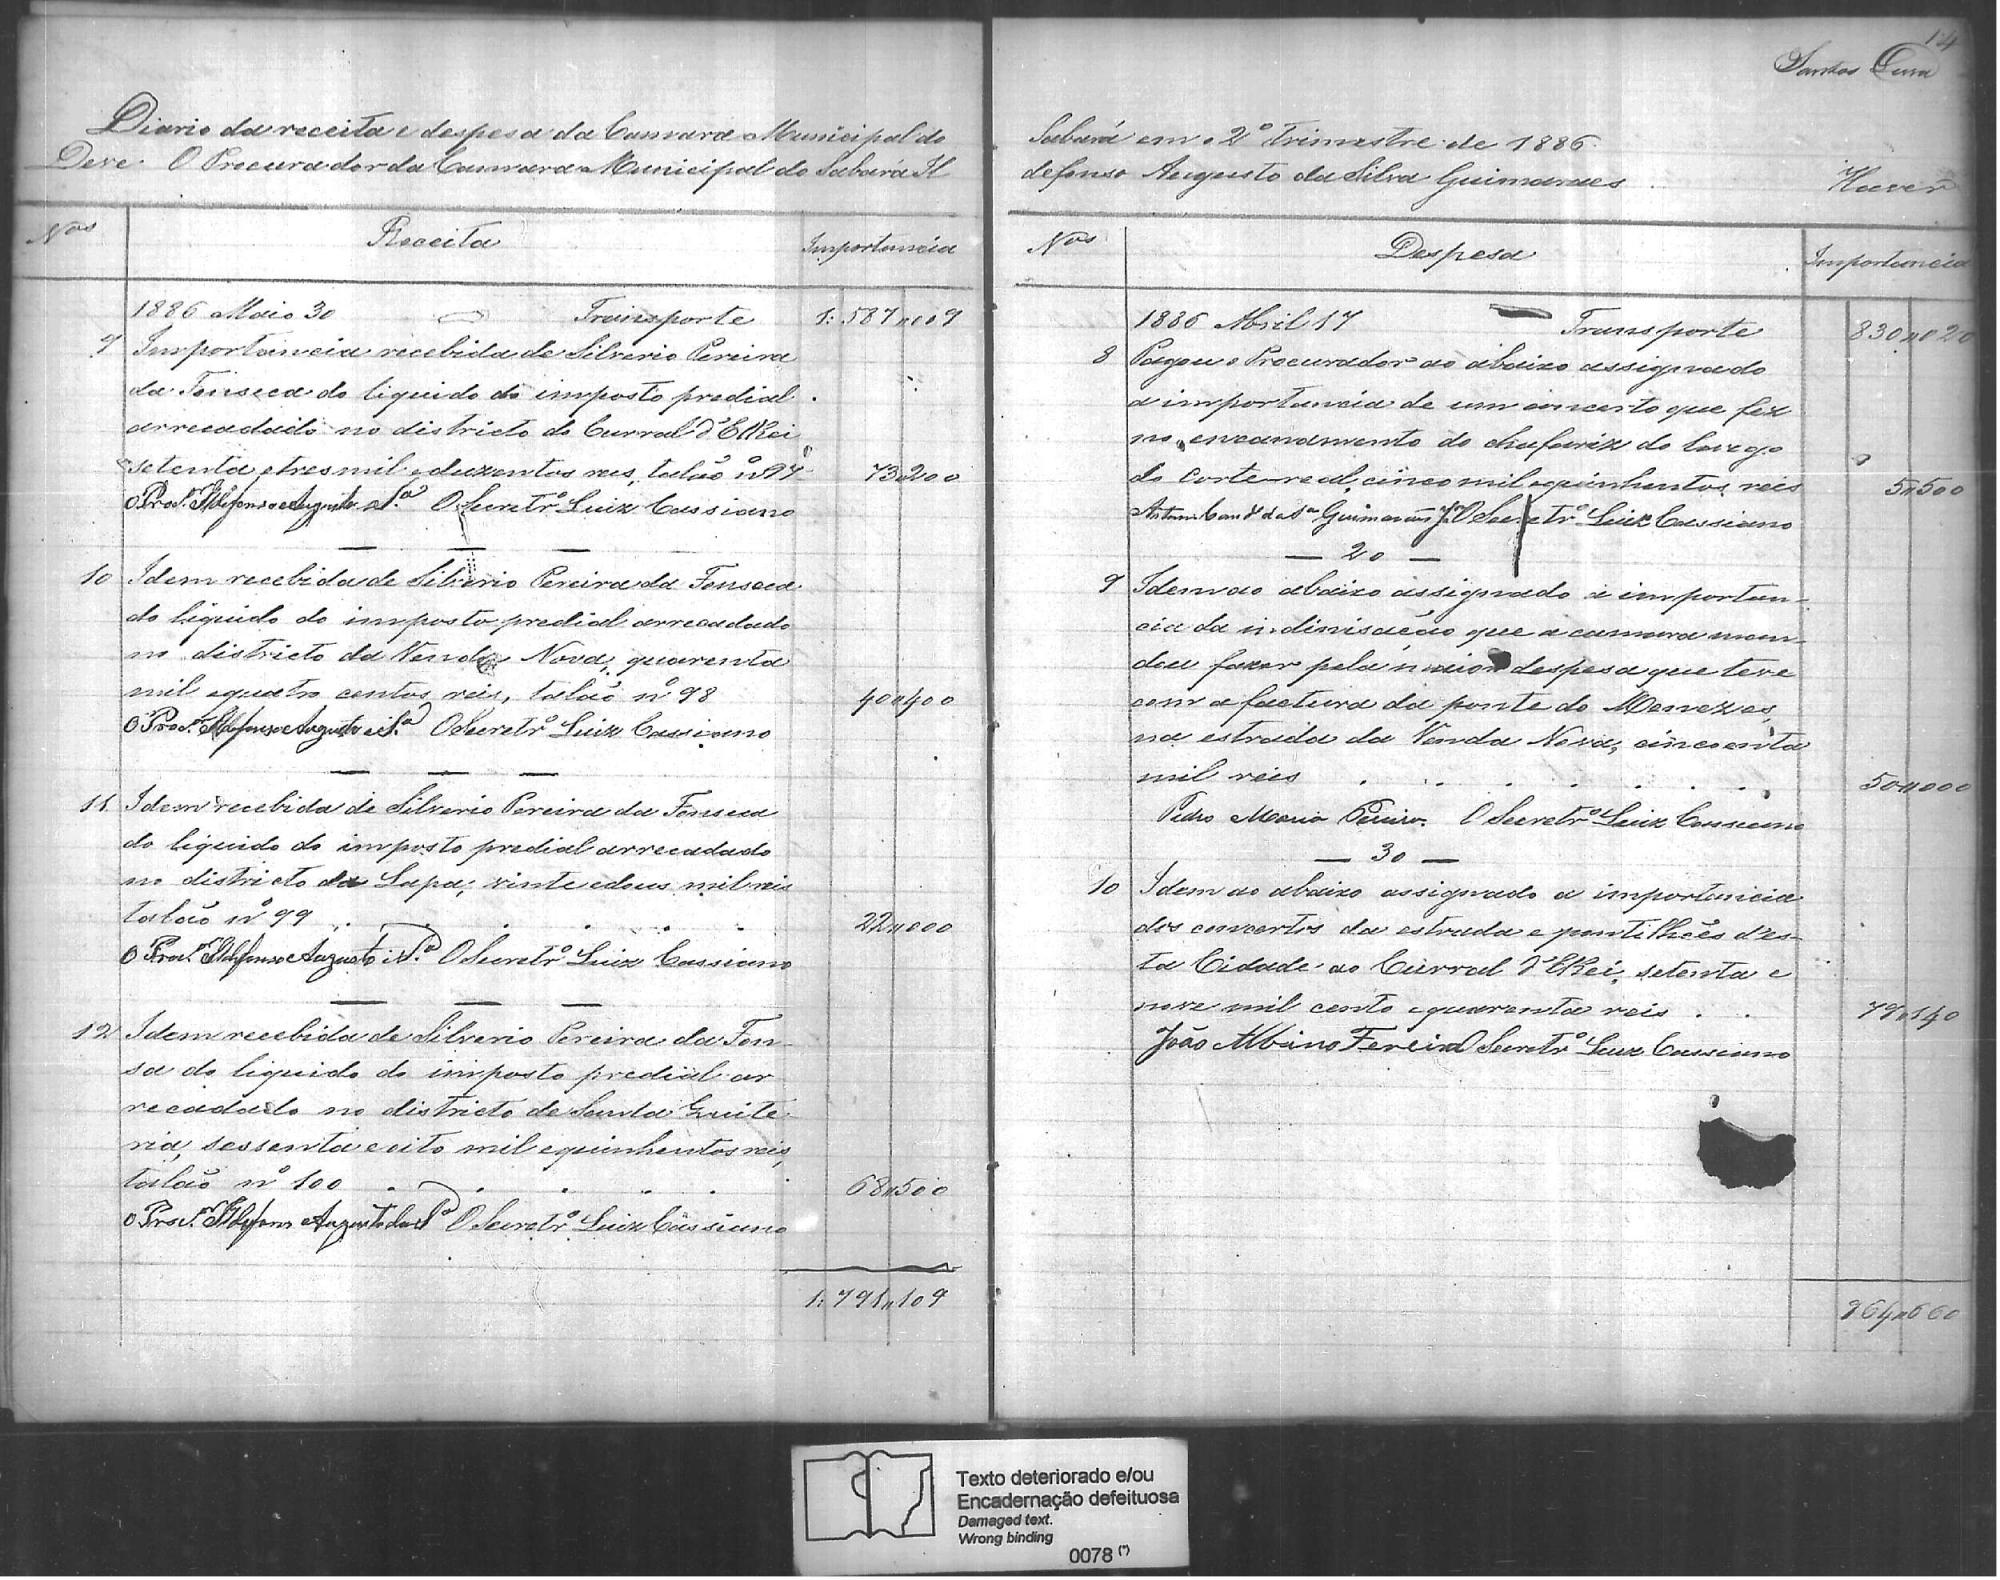 14
Santos Lima
Diario da receita e despesa da Camara Municipal do
Deve O Procurador da Camara Municipal do Sabará Il
Nos Receita Importancia
1886 Maio 30 Transporte 1:587,,009
9 Importancia recebida de Silverio Pereira
da Fonseca do liquido do imposto predial
arrecadado no districto do Curral d'El Rei
setenta e tres mil e duzentos reis, talão nº 97 73,,200
O Proc.or Ildefonso Augusto da S.a O Secretrº Luiz Cassiano
10 Idem recebida de Silverio Pereira da Fonseca
do liquido do imposto predial arrecadado
no districto da Venda Nova, quarenta
mil e quatro centos reis, talão nº 98 40,,400
O Proc.or Ildefonso Augusto da S.a O Secretrº Luiz Cassiano
11 Idem recebida de Silverio Pereira da Fonseca
do liquido do imposto predial arrecadado
no districto da Lapa, vinte e dous mil reis
talão nº 99 22,,000
O Proc.or Ildefonso Augusto da S.a O Secretrº Luiz Cassiano
12 Idem recebida de Silverio Pereira da Fon-
sa do liquido do imposto predial ar
recadado no districto de Santa Quite
ria, sessenta e oito mil e quinhentos reis,
talão nº 100 68,,500
O Proc.or Ildefonso Augusto da S.a O Secretrº Luiz Cassiano
1:791,,109
Sabará em 2º Trimestre de 1886
defonso Augusto da Silva Guimarães Haver
Nos Despesa Importancia
1886 Abril 17 Transporte 830,,020
8 Pagou o Procurador ao abaixo assignado
a importancia de um concerto que fez
no encanamento do chafariz do largo
do Corte-real, cinco mil e quinhentos reis 5,,500
Antonio Cand.º da S.a Guimarães Jor O Secretrº Luiz Cassiano
— 20 —
9 Idem ao abaixo assignado a importan-
cia da indinisação que a camara man-
dou fazer pela maior despesa que teve
com a factura da ponte do Menezes,
na estrada da Venda Nova, cincoenta
mil reis 50,,000
Pedro Maria Pereira. O Secretrº Luiz Cassiano
— 30 —
10 Idem ao abaixo assignado a importancia
dos concertos da estrada e pontilhões d'es-
ta Cidade ao Curral d'El Rei, setenta e
nove mil cento e quarenta reis 79,,140
João Albino Fereira O Secretrº Luiz Cassiano
964,,660
Texto deteriorado e/ou
Encadernação defeituosa
Damaged text.
Wrong binding
0078 (*)